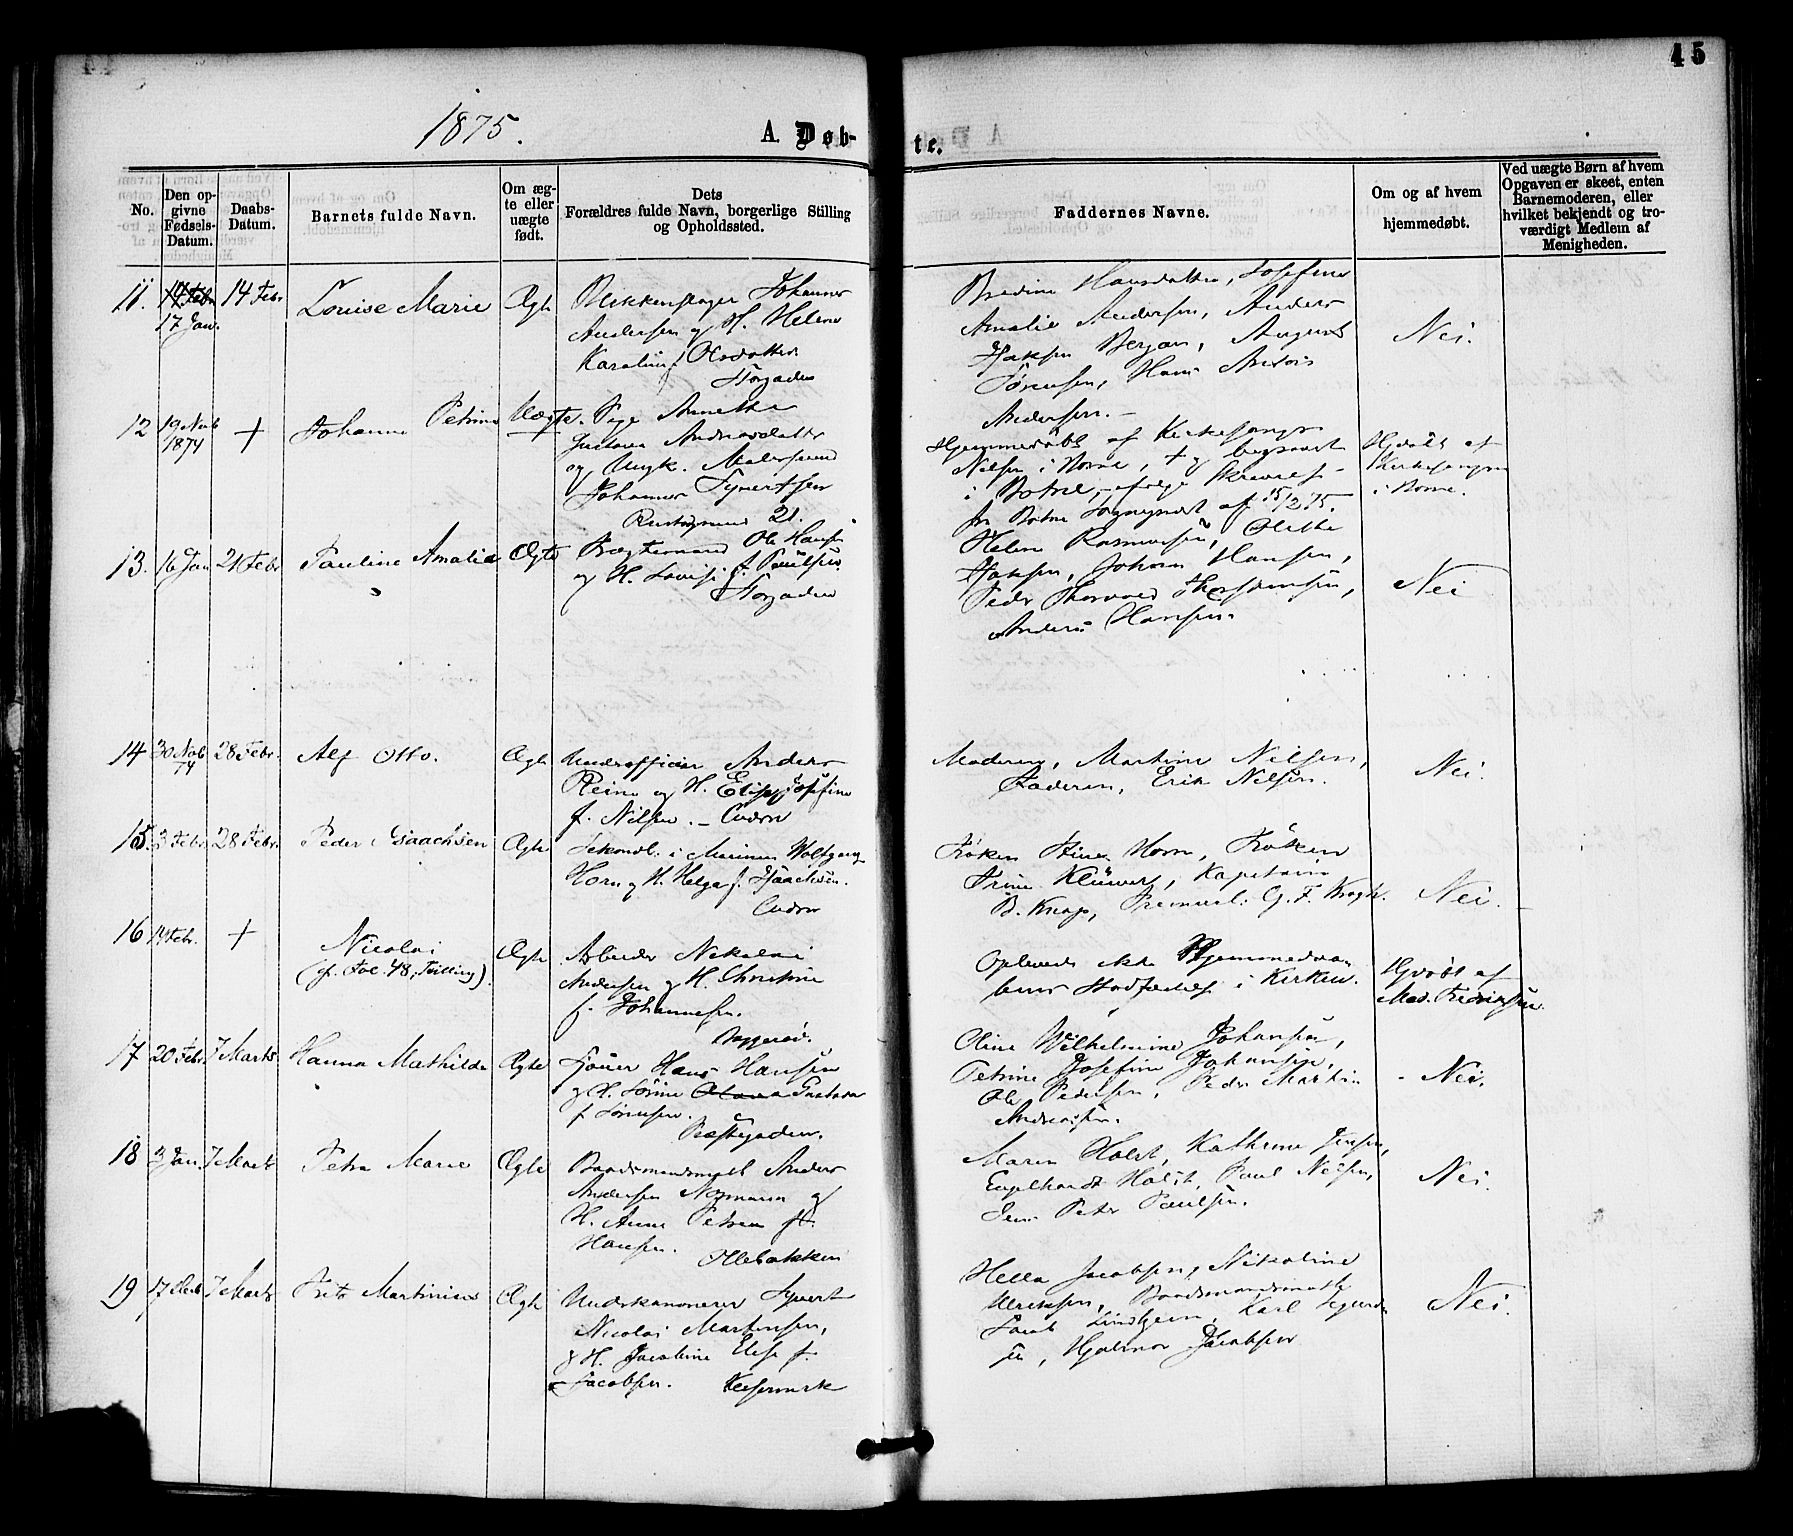 45
1875.
A. Døb-
te.
No.
Den op-
givne
Fødsels-
Datum.
Daabs-
Datum.
Barnets fulde Navn.
Om æg-
te eller
uægte
født.
Dets
Forældres fulde Navn, borgerlige Stilling
og Opholdssted.
Faddernes Navne.
Om og af hvem
hjemmedøbt.
Ved uægte Børn af hvem
Opgaven er skeet, enten
Barnemoderen, eller
hvilket bekjendt og tro-
værdigt Medlem af
Menigheden.
11.
14 Febr
17 Jan.
14 Febr
Louise Marie
Ægte
Blikkenslager Johannes
Andersen og H. Helene
Karoline f. Olsdatter
Storgaden
Bredine Hansdatter, Josefine
Amalie Andersen, Anders
Isaksen Bergan, August
Sørensen, Hans Anton
Andersen.
Nei.
12
19 Novb
1874
+
Johanne Petrine
Uægte
Pige Annette
Gustava Andreasdatter
og Ungk. Malersvend
Johannes Syvertsen
21.
Hjemmedøbt af Kirkesanger
Nilsen i Borre, + og begravet
i Botne, ifølge Skrivelse
fr Botne Sognepræst af 15/2 75.
Hjdøbt af
Kirkesanger
i Borre.
13.
16 Jan
21 Febr
Pauline Amalie
Ægte
Ole Hansen
og H. Lovise f. Paulsen.
Storgaden
Helene Rasmusen, Olette
Isaksen, Johan Hansen,
Peder Thorvald Thorstensen,
Anders Hansen.
Nei
14
30 Novb
74
28 Febr.
Alf Otto.
Ægte
Underofficier Anders
Reine og H. Elise Josefine
f. Nilsen. –
Moderen, Martine Nilsen,
Faderen, Erik Nilsen.
Nei.
15
3 Febr
28 Febr.
Peder Isaachsen
Ægte
Sekondl. i Marinen Wolfgang
Horn og H. Helga f. Isaachsen.
Frøken Stina Horn, Frøken
Trine Klüwer, Kaptain
B. Knap, Premierl. G. F. Krogh.
Nei.
16
14 Febr.
+
Nicolai
(cf. Fol. 48, Tvilling).
Ægte
Arbeider Nikolai
Andersen og H. Christine
f. Johannesen.
Baggerød.
Oplevede ikke Hjemmedaa
bens Stadfæstelse i Kirken.
Hjdøbt af
Mad. Fredriksen.
17
20 Febr.
7 Marts
Hanna Mathilde
Ægte
Hans Hansen
og H. Sørine Olava Gustava
f. Sørensen.
Præstegaden.
Oline Wilhelmine Johansen,
Petrine Josefine Johansen,
Ole Pedersen, Peder Martin
Andreassen.
Nei.
18
3 Jan.
7 Marts
Petra Marie
Ægte
Baadsmandsmath Anders
Andersen Normann og
H. Anne Petrea f.
Hansen.
Olebakken
Maren Holst, Kathrine Jensen,
Engelhardt Holst, Paul Nilsen,
Jens Peter Paulsen.
Nei.
19
17
7 Marts
Frits Martinius
Ægte
Underkanonerer Syvert
Nicolai Martinsen,
& H. Jacobine Elise f.
Jacobsen.
Keisemark
Hella Jacobsen, Nikoline
Ulriksen, Baadsmandsmath
Jacob Lindgren, Karl Sigurd
sen, Hjalmar Jacobsen
Nei.